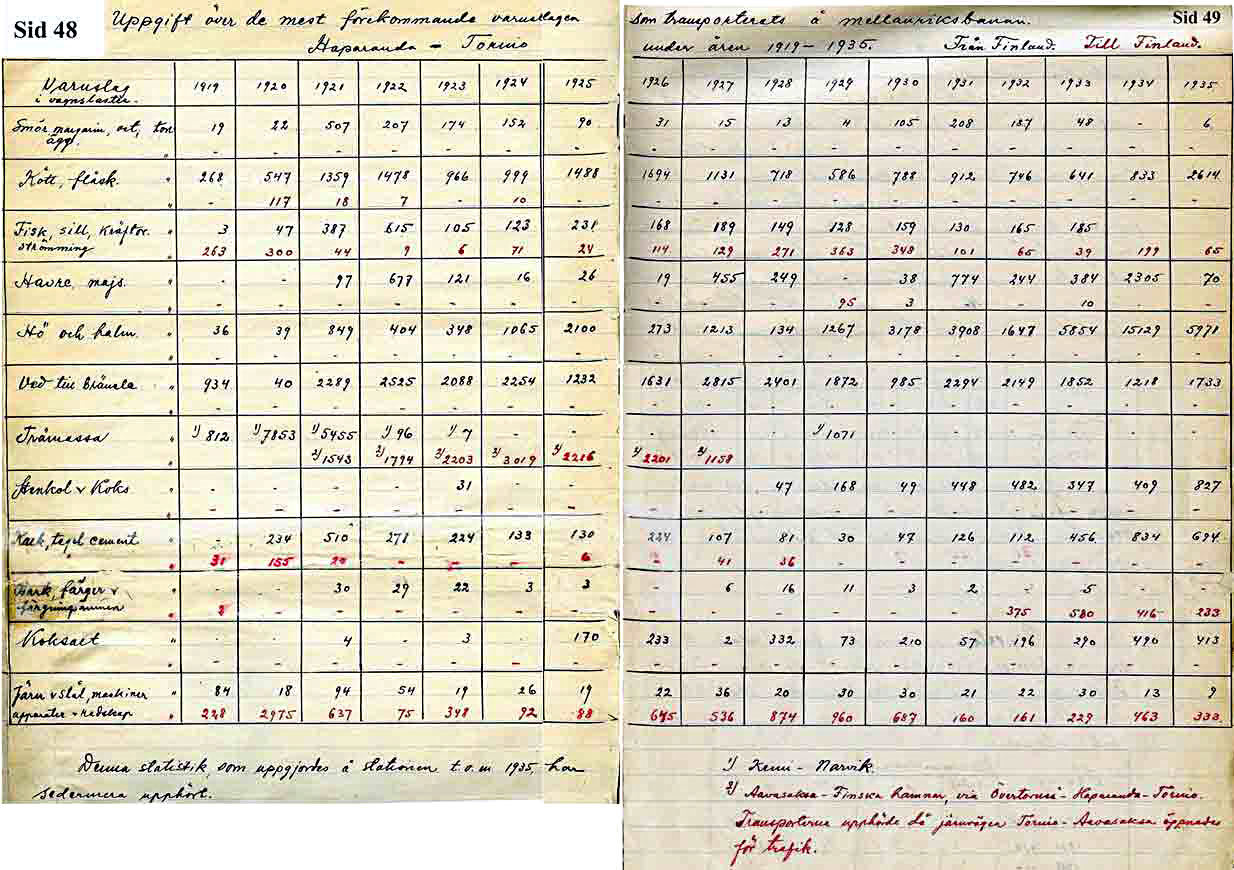 Sid 48
Uppgift över de mest förekommande varuslagen
Haparanda – Tornio
Sid 49
som transporterats å mellanriksbanan.
under åren 1919 – 1935. Från Finland. Till Finland.
Varuslag i vagnslaster. 1919 1920 1921 1922 1923 1924 1925 1926 1927 1928 1929 1930 1931 1932 1933 1934 1935
Smör, margarin, ost, ton 19 22 507 207 174 152 90 31 15 13 4 105 208 187 48 - 6
ägg. " - - - - - - - - - - - - - - - - -
Kött, fläsk. " 268 547 1359 1478 966 999 1488 1694 1131 718 586 788 912 746 641 833 2614
" - 117 18 7 - 10 - - - - - - - - - - -
Fisk, sill, kräftor. " 3 47 387 615 105 123 231 168 189 149 128 159 130 165 185
strömming " 263 300 44 9 6 71 24 114 129 271 363 348 101 65 39 199 65
Havre, majs. " - - 97 677 121 16 26 19 455 249 - 38 774 244 384 2305 70
" - - - - - - - - - - 95 3 - - 10 - -
Hö och halm. " 36 39 849 404 348 1065 2100 273 1213 134 1267 3178 3908 1647 5854 15129 5971
" - - - - - - - - - - - - - - - - -
Ved till bränsle " 934 40 2289 2525 2088 2254 1232 1631 2815 2401 1872 985 2294 2149 1852 1218 1733
" - - - - - - - - - - - - - - - - -
Trämassa " 1/ 812 1/ 7853 1/ 5455 1/ 96 1/ 7 - - - - - 1/ 1071 - - - - - -
" 2/ 1543 2/ 1794 2/ 2203 2/ 3019 2/ 2216 2/ 2201 2/ 1158
Stenkol & Koks " - - - - 31 - - - - 47 168 49 448 482 347 409 827
" - - - - - - - - - - - - - - - - -
Kalk, tegel cement " - 234 510 278 224 133 130 224 107 81 30 47 126 112 456 834 694
" 31 155 20 - 5 - 6 - 41 36 - - - - - - -
Bark, färger & " - - 30 29 22 3 3 - 6 16 11 3 2 - 5 - -
färgningsämnen " 2 - - - - - - - - - - - - 375 580 416 233
Koksalt " - - 4 - 3 - 170 233 2 332 73 210 57 196 290 490 413
" - - - - - - - - - - - - - - - - -
Järn & stål, maskiner " 84 18 94 54 19 26 19 22 36 20 30 30 21 22 30 13 9
apparater & redskap " 228 2975 637 75 348 92 88 645 536 874 960 687 160 161 229 463 333
Denna statistik, som uppgjordes å stationen t.o.m 1935, har
sedermera upphört.
1/ Kemi – Narvik.
2/ Aavasaksa – Finska hamnar, via Övertorneå – Haparanda – Tornio.
Transporterna upphörde då järnvägen Tornio – Aavasaksa öppnades
för trafik.